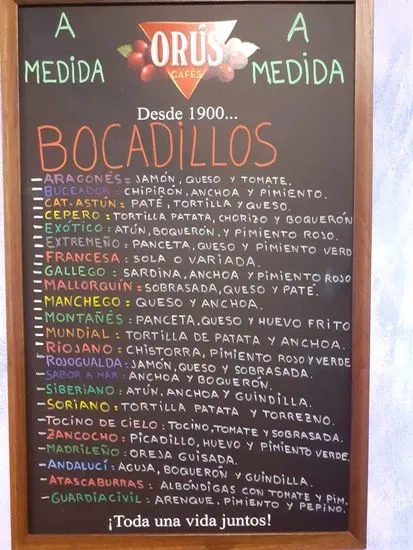 A MEDIDA
ORÚS
CAFÉS
A MEDIDA
Desde 1900...
BOCADILLOS
- ARAGONÉS = JAMÓN, QUESO Y TOMATE.
- BUCEADOR: CHIPIRÓN, ANCHOA Y PIMIENTO.
- CAT-ASTÚN: PATÉ, TORTILLA Y QUESO.
- CEPERO: TORTILLA PATATA, CHORIZO Y BOQUERÓN
- EXÓTICO: ATÚN, BOQUERÓN, Y PIMIENTO ROJO.
- EXTREMEÑO: PANCETA, QUESO Y PIMIENTO VERDE
- FRANCESA: SOLA O VARIADA.
- GALLEGO: SARDINA, ANCHOA Y PIMIENTO ROJO
- MALLORQUÍN: SOBRASADA, QUESO Y PATÉ.
- MANCHEGO: QUESO Y ANCHOA.
- MONTAÑÉS: PANCETA, QUESO Y HUEVO FRITO
- MUNDIAL: TORTILLA DE PATATA Y ANCHOA.
- RIOJANO: CHISTORRA, PIMIENTO ROJO Y VERDE
- ROJOGUALDA: JAMÓN, QUESO Y SOBRASADA.
- SABOR A MAR: ANCHOA Y BOQUERÓN.
- SIBERIANO: ATÚN, ANCHOA Y GUINDILLA.
- SORIANO: TORTILLA PATATA Y TORREZNO.
- TOCINO DE CIELO: TOCINO, TOMATE Y SOBRASADA.
- ZANCOCHO: PICADILLO, HUEVO Y PIMIENTO VERDE.
- MADRILEÑO: OREJA GUISADA.
- ANDALUCÍ: AGUJA, BOQUERÓN Y GUINDILLA.
- ATASCABURRAS: ALBÓNDIGAS CON TOMATE Y PIM.
- GUARDIACIVIL: ARENQUE, PIMIENTO Y PEPINO.
¡Toda una vida juntos!